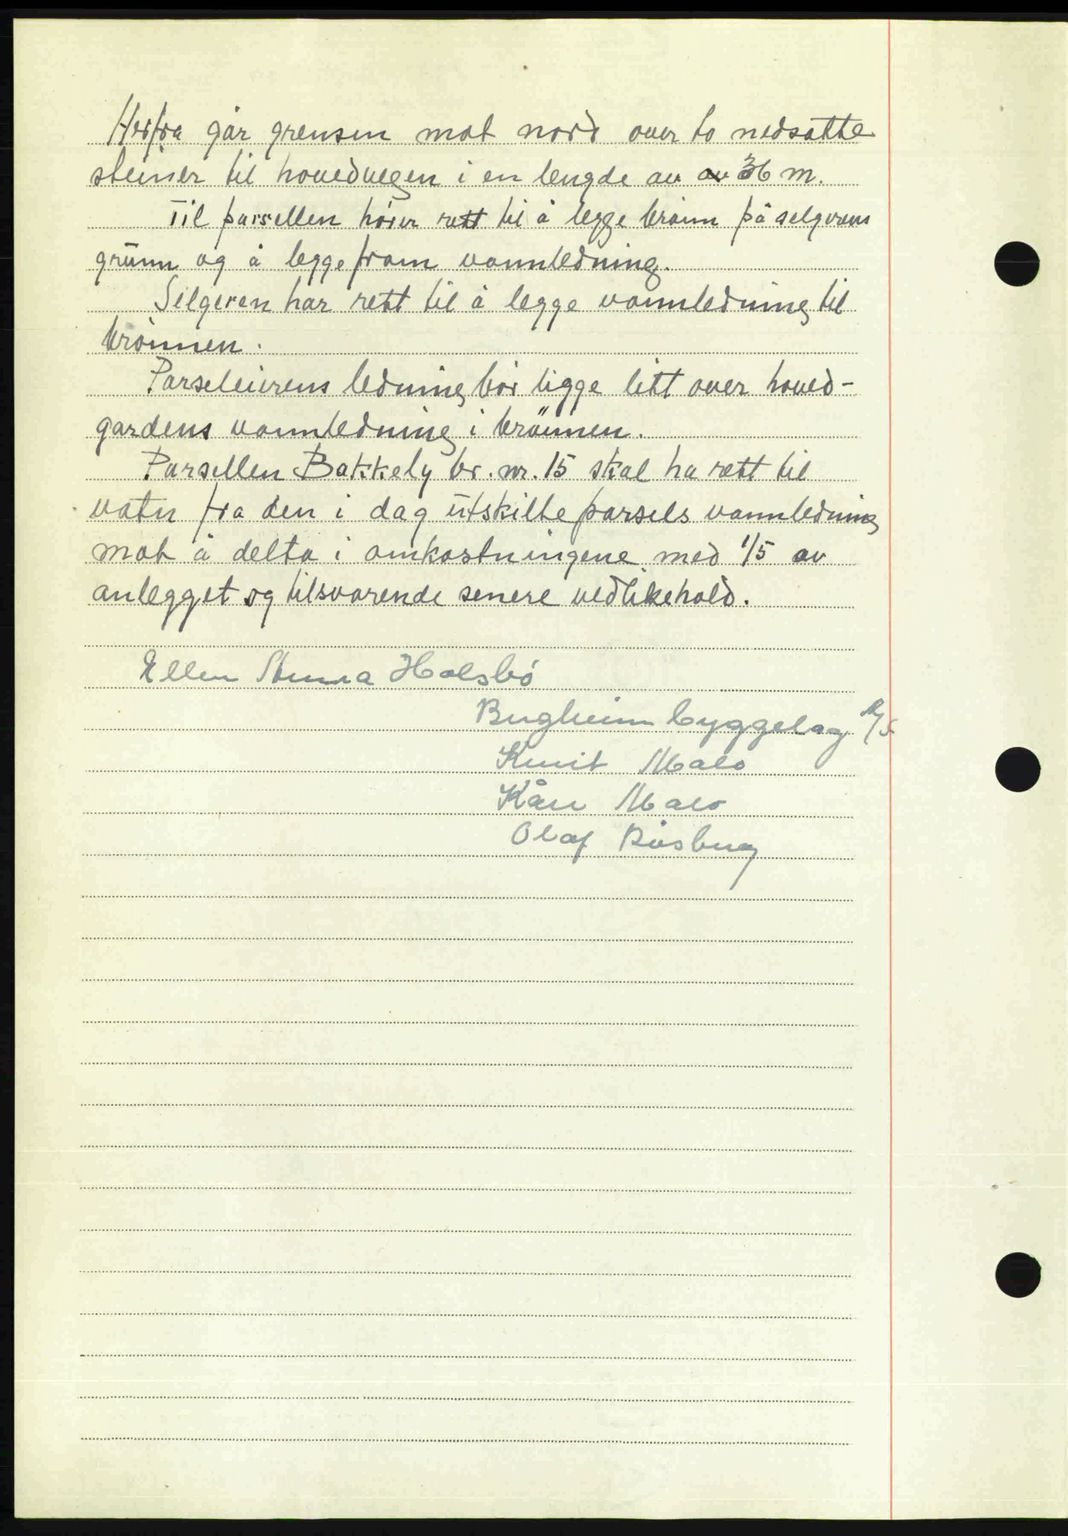 Herfra går grensen mot nord over to nedsatte
steiner til hovedvegen i en lengde av av 36 m.
Til parsellen hører rett til å legge brønn på selgerens
grunn og å legge fram vannledning.
Selgeren har rett til å legge vannledning til
brønnen.
Parseleierens ledning bør ligge litt over hoved-
gardens vannledning i brønnen.
Parsellen Bakkely br. nr. 15 skal ha rett til
vatn fra den i dag utskilte parsels vannledning
mot å delta i omkostningene med 1/5 av
anlegget og tilsvarende senere vedlikehold.
Ellen Anna Holsbö
byggelag A/S
Knut Malo
Kåre Malo
Olaf